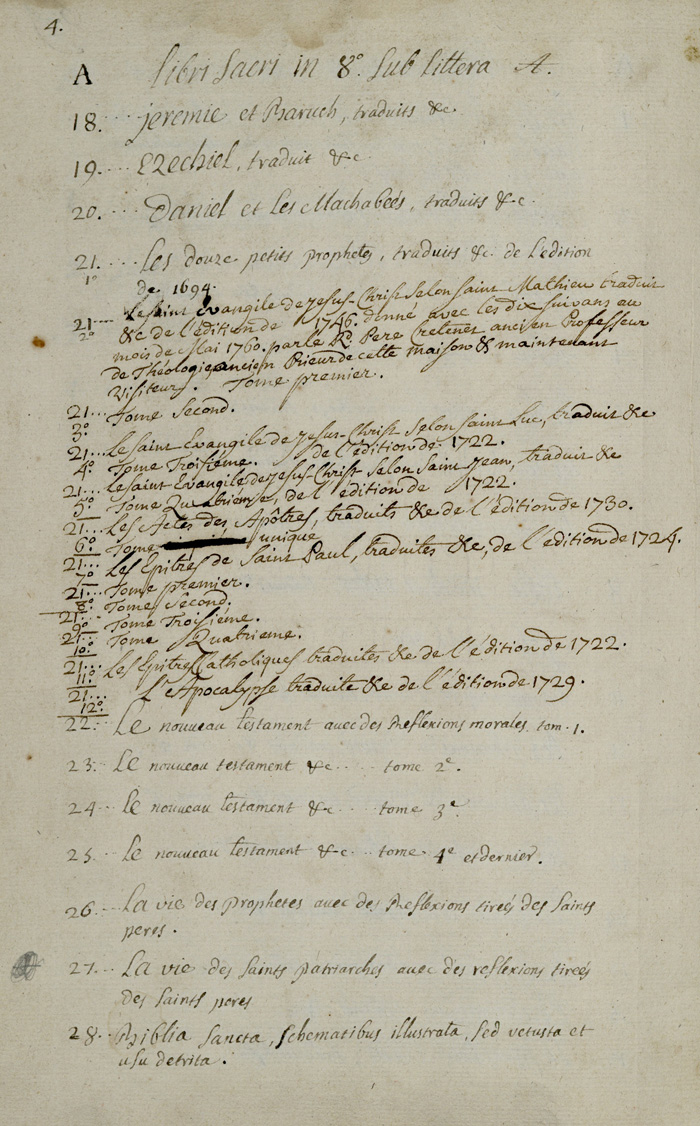 4.
A Libri Sacri in 8.° Sub Littera A.
18.... jeremie et Baruch, traduits &c.
19.... Ezechiel, traduit &c.
20.... Daniel et Les Machabeés, traduits &c.
21.... Les douze petits prophetes, traduits &c. de L'edition
1°
de 1694.
21... Le Saint Evangile de Jesus-Christ Selon Saint Mathieu traduit
2°
&c de l'édition de 1746. donné avec les dix suivans au
mois de Mai 1760. par le Rd. Pere ancien Professeur
de Théologie, ancien Prieur de cette maison & maintenant
Visiteur. Tome premier.
21... Tome Second.
3°
21... Le Saint Evangile de Jesus-Christ Selon Saint Luc, traduit &c
4° Tome Troisiéme. de l'édition de 1722.
21... Le Saint Evangile de Jesus-Christ Selon Saint Jean, traduit &c
5° Tome Quatriéme, de l'édition de 1722.
21... Les Actes des Apôtres, traduits &c de l'édition de 1730.
6° Tome unique
21... Les Epitres de Saint Paul, traduites &c, de l'édition de 1724.
7° Tome premier.
21... Tome Second.
8°
21... Tome Troisiéme.
9°
21... Tome Quatrieme.
10°
21... Les Epitres Catholiques traduites &c de l'édition de 1722.
11°
21... L'Apocalypse traduite &c de l'édition de 1729.
12°
22... Le nouveau testament avec des Reflexions morales, tom. 1.
23.. Le nouveau testament &c.... tome 2e.
24... Le nouveau testament &c.... tome 3e.
25... Le nouveau testament &c.... tome 4e et dernier.
26... La vie des prophetes avec des Reflexions tireés des Saints
peres.
27... La vie des Saints patriarches avec des reflexions tireés
des Saints peres
28.. Biblia Sancta, Schematibus illustrata, Sed vetusta et
usu detrita.